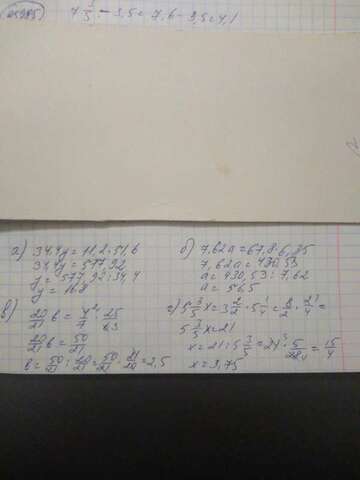 7 3/5 - 3,5 = 7,6 - 3,5 = 4,1
а) 34,4y = 11,2·51,6
34,4y = 577,92
y = 577,92 : 34,4
y = 16,8
б) 7,62a = 67,8·6,35
7,62a = 430,53
a = 430,53 : 7,62
a = 56,5
в) 20/21 b = 
20/21 b = 50/21
b = 50/21 : 20/21 = 50/21 · 21/20 = 2,5
г) 5 3/5 x = 3
5 3/5 x = 21
x = 21 : 5 3/5 = 21 · 5/28 = 15/4
x = 3,75